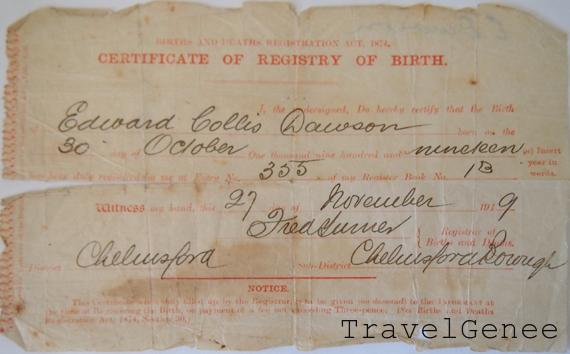 BIRTHS AND DEATHS REGISTRATION ACT, 1874.
CERTIFICATE OF REGISTRY OF BIRTH.
I, the undersigned, Do hereby certify that the Birth
of Edward Collis Dawson born on the
30 day of October One thousand nine hundred and nineteen (a) Insert year in words.
has been duly registered by me at Entry No. 355 of my Register Book No. 1B
Witness my hand, this 27 day of November 1919
Fred Turner Registrar of Births and Deaths.
District Chelmsford Sub-District Chelmsford Borough
NOTICE.
This Certificate when duly filled up by the Registrar, is to be given (on demand) to the INFORMANT at
the time of Registering the Birth, on payment of a fee not exceeding Three-pence. (See Births and Deaths
Registration Act, 1874, Section 30.)
TravelGenee